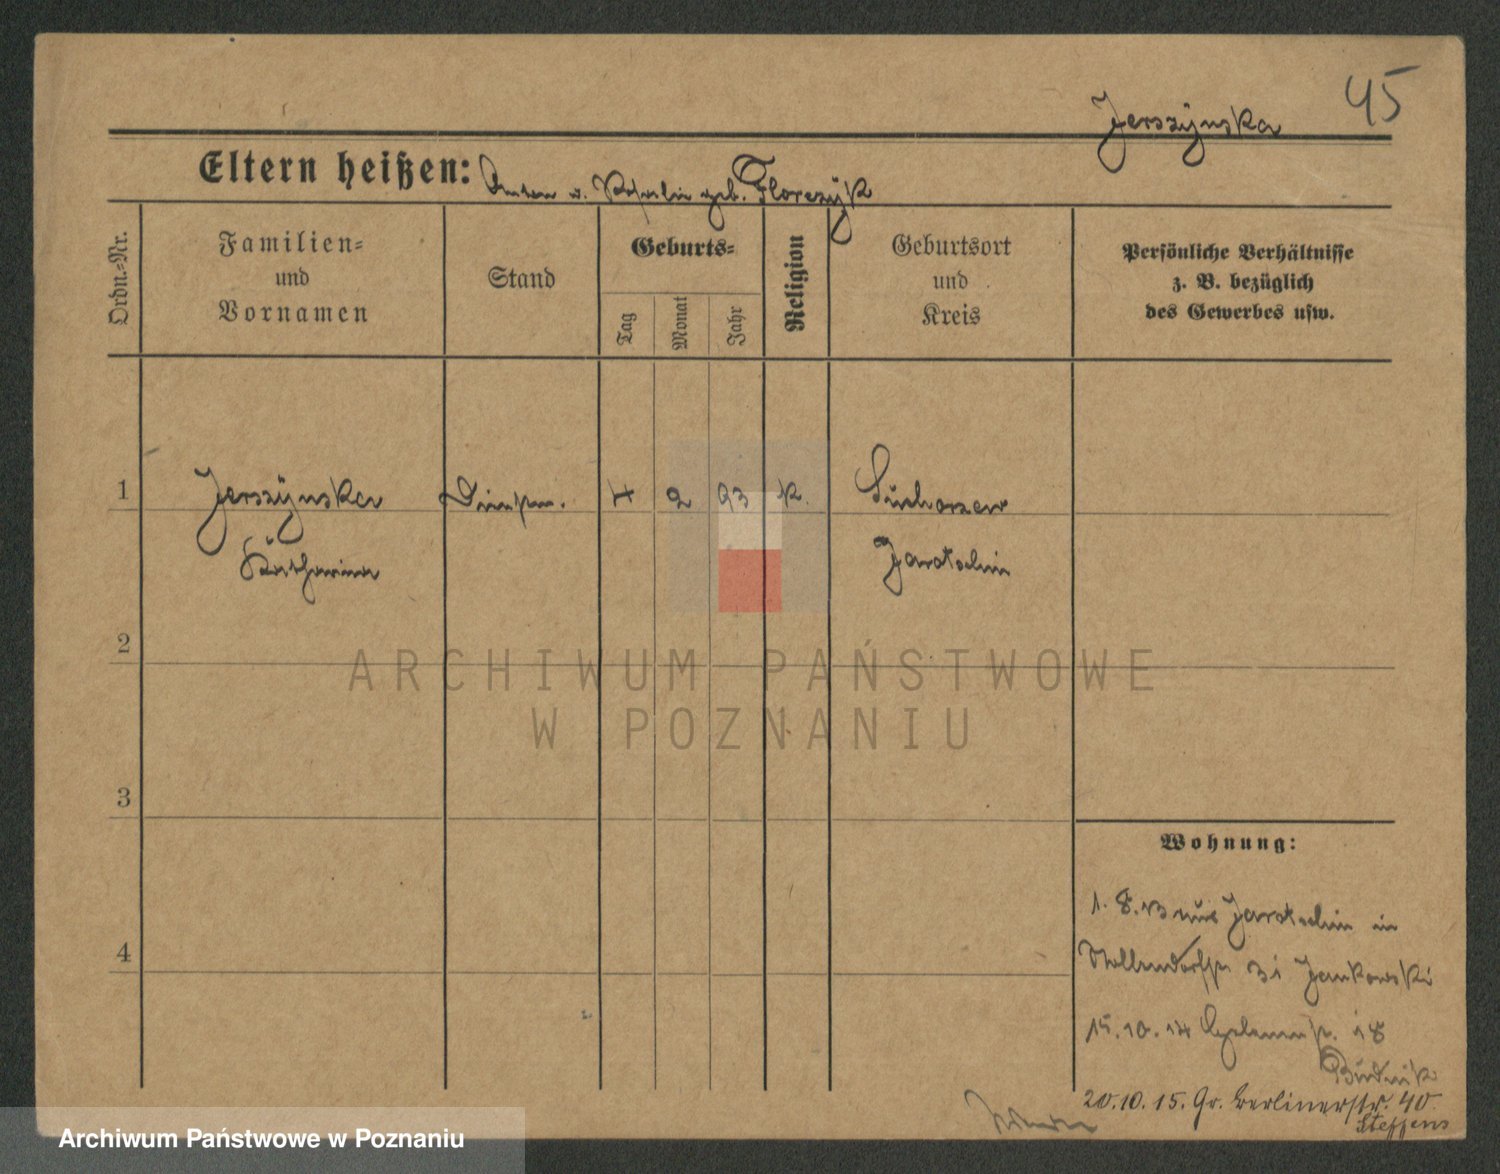 45
Jerszÿnska
Eltern heißen: Anton u. Rosalie geb. Florczÿk
Ordn.-Nr.
Familien-
und
Vornamen
Stand
Geburts-
Tag
Monat
Jahr
Religion
Geburtsort
und
Kreis
Persönliche Verhältnisse
z. B. bezüglich
des Gewerbes usw.
1
Jerszÿnska
Katharina
4 2 93 K.
Sucharzew
Jarotschin
2
ARCHIWUM PAŃSTWOWE
W POZNANIU
3
Wohnung:
1. 8. 13 aus Jarotschin in
31 Jankowski
4
15. 10. 14 18
Budnik
20. 10. 15. Gr. Berlinerstr. 40.
Steffens
Archiwum Państwowe w Poznaniu